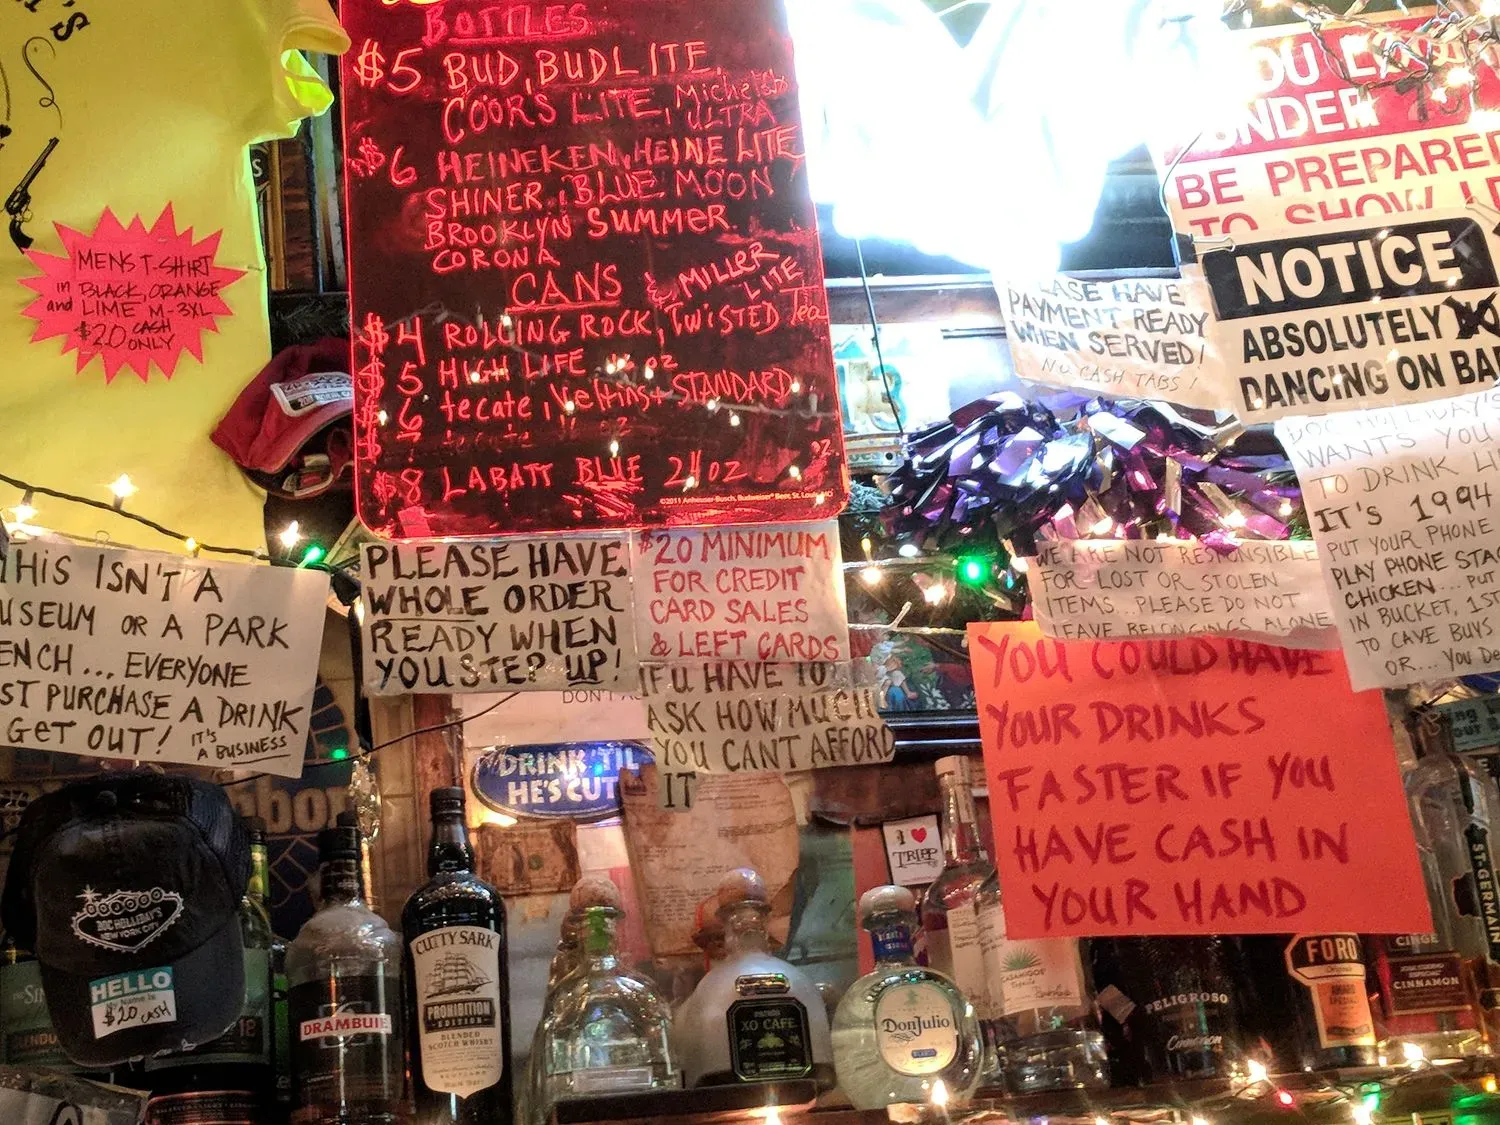 MENS T-SHIRT
in BLACK, ORANGE
and LIME M-3XL
$20 CASH
ONLY
BOTTLES
$5 BUD, BUDLITE,
COORS LITE, Michelob
ULTRA
$6 HEINEKEN, HEINE LITE
SHINER, BLUE MOON
BROOKLYN SUMMER
CORONA
CANS & MILLER
LITE
$4 ROLLING ROCK, TWISTED Tea
$5 HIGH LIFE 16 oz
$6 tecate, Veltins + STANDARD
$8 LABATT BLUE 24 OZ
©2011 Anheuser-Busch, Budweiser® Beer, St. Louis, MO
YOU
UNDER
BE PREPARED
TO SHOW
NOTICE
ABSOLUTELY
DANCING ON BA
PLEASE HAVE
PAYMENT READY
WHEN SERVED!
NO CASH TABS!
DOC HOLLIDAY'S
WANTS YOU
TO DRINK LI
IT'S 1994
PUT YOUR PHONE
PLAY PHONE STAC
CHICKEN... PUT
IN BUCKET, 1ST
TO CAVE BUYS
OR... YOU DE
WE ARE NOT RESPONSIBLE
FOR LOST OR STOLEN
ITEMS... PLEASE DO NOT
LEAVE BELONGINGS ALONE
THIS ISN'T A
USEUM OR A PARK
ENCH... EVERYONE
ST PURCHASE A DRINK
GET OUT! IT'S
A BUSINESS
PLEASE HAVE
WHOLE ORDER
READY WHEN
YOU STEP UP!
$20 MINIMUM
FOR CREDIT
CARD SALES
& LEFT CARDS
IF U HAVE TO
ASK HOW MUCH
YOU CANT AFFORD
IT
DON'T
DRINK 'TIL
HE'S CUTE
YOU COULD HAVE
YOUR DRINKS
FASTER IF YOU
HAVE CASH IN
YOUR HAND
I ♥
TRIPP
DOC HOLLIDAY'S
NEW YORK CITY
HELLO
My Name Is
$20 CASH
DRAMBUIE
CUTTY SARK
PROHIBITION
EDITION
BLENDED
SCOTCH WHISKY
PATRÓN
XO CAFE
Don Julio
BLANCO
CASAMIGOS
Tequila
PELIGROSO
Cinnamon
FORO
AMARO
SPECIALE
CINGE
CINNAMON
ST-GERMAIN